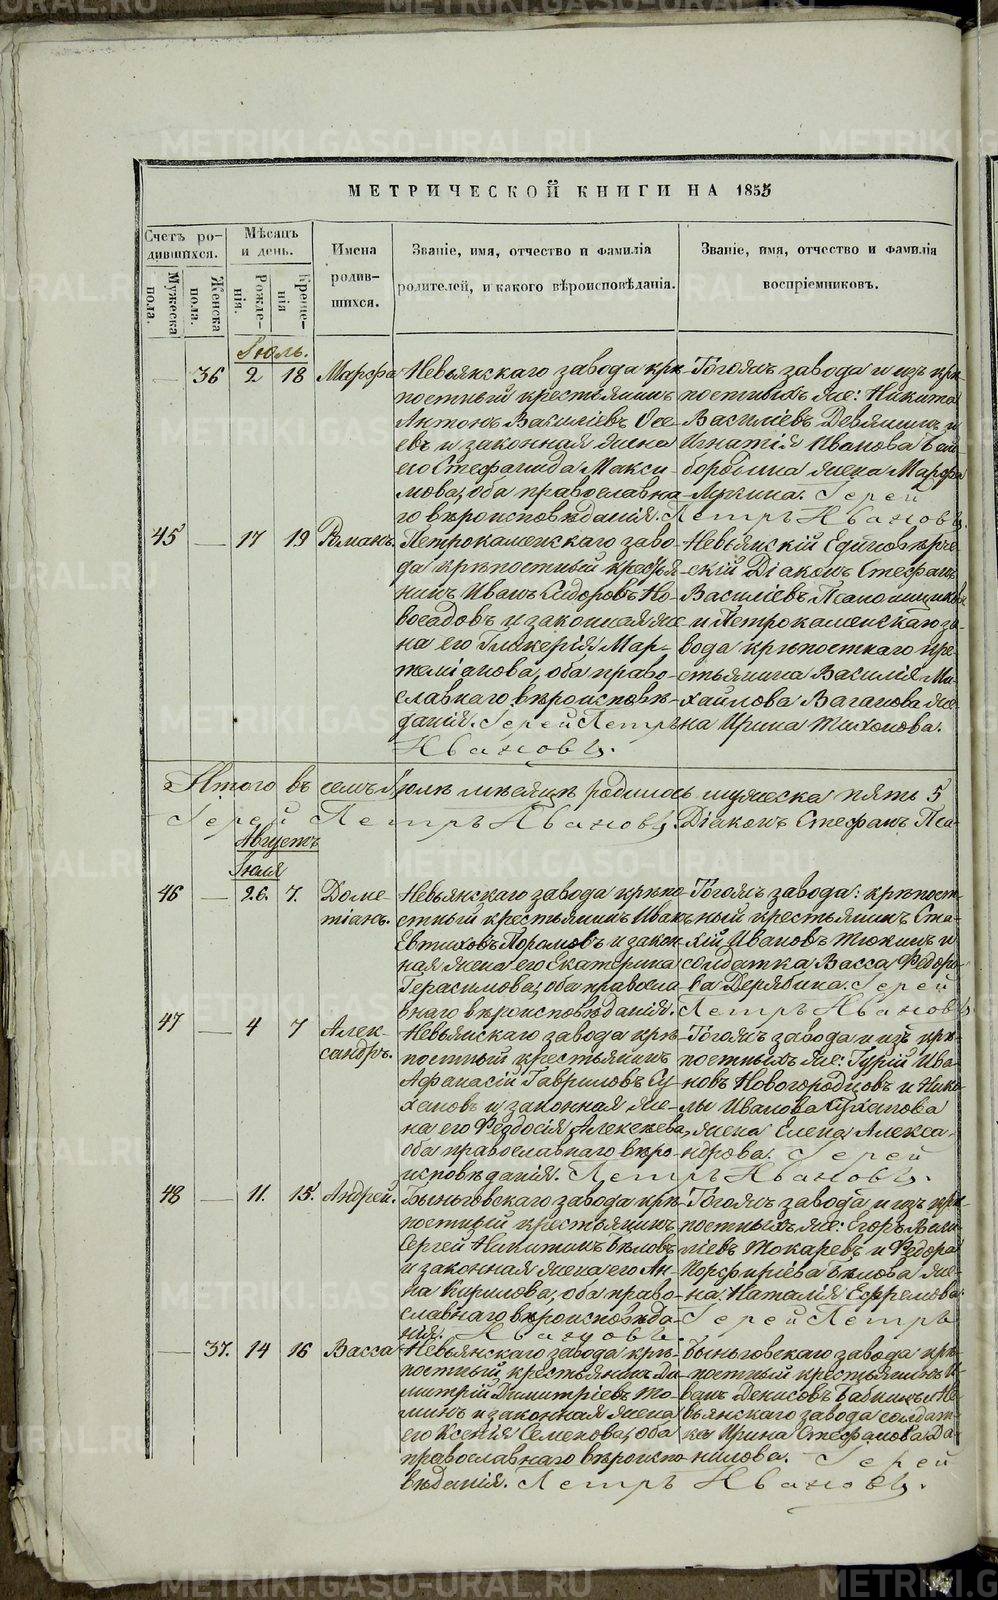 МЕТРИЧЕСКОЙ КНИГИ НА 1855
Счетъ родившихся.
Мѣсяцъ и день.
Имена родившихся.
Званіе, имя, отчество и фамилія родителей, и какого вѣроисповѣданія.
Званіе, имя, отчество и фамилія воспріемниковъ.
Мужеска пола.
Женска пола.
Рожденія.
Крещенія
Іюль.
— 36 2 18 Марфа
Невьянскаго завода крѣ
постный крестьянинъ
Антонъ Васильевъ
евъ и законная жена
его Стефанида Макси
мова, оба православна
го вѣроисповѣданія.
Тогожъ завода и изъ крѣ
постныхъ же: Никита
Васильевъ Девяшинъ и
Игнатія Иванова
жена Марфа
Іерей
Петръ Ивановъ.
45 — 17 19 Романъ.
Петрокаменскаго заво-
да крѣпостный крестья
нинъ Иванъ Сидоровъ Но-
восадовъ и законная же
на его Гликерія Мар-
темianова, оба право-
славнаго вѣроисповѣ-
данія. Іерей Петръ
Ивановъ.
Невьянскій Единовѣрче
скій Діаконъ Стефанъ
Васильевъ Псаломщиковъ
и Петрокаменскаго за-
вода крѣпостнаго кре-
стьянина Василія Ми-
хайлова Ваганова же-
на Ирина Тихонова.
Итого въ семъ Іюлѣ мѣсяцѣ родилось мужеска пять 5
Іерей Петръ Ивановъ. Діаконъ Стефанъ Пса-
Августъ
Іюля
46 — 26. 7. Доме-
тіанъ.
Невьянскаго завода крѣпо
стный крестьянинъ Иванъ
Евтиховъ и закон
ная жена его Екатерина
Герасимова, оба правосла
внаго вѣроисповѣданія.
Тогожъ завода: крѣпост-
ный крестьянинъ
Ивановъ Тюкинъ и
солдатка Васса Ѳедоро-
ва Дерябина. Іерей
Петръ Ивановъ
47 — 4 7 Алек-
сандръ.
Невьянскаго завода крѣ-
постный крестьянинъ
Афанасій Гавриловъ Су-
хановъ и законная же-
на его Ѳеодосія Алексѣева,
оба православнаго вѣро-
исповѣданія.
Тогожъ завода и изъ крѣ-
постныхъ же: Гурій Ива-
новъ Новогородцовъ и Нико-
лы Иванова Суханова
жена Елена Алекса-
ндрова. Іерей
Петръ Ивановъ.
48 — 11. 15. Андрей.
Быньговскаго завода крѣ-
постный крестьянинъ
Сергей Никитинъ Бѣловъ
и законная жена его Ан-
на Кирилова, оба право-
славнаго вѣроисповѣда-
нія. Ивановъ.
Тогожъ завода и изъ крѣ-
постныхъ же: Егоръ Васи
ліевъ Токаревъ и Ѳедора
Порфиріева Бѣлова же-
на Наталія Ефремова.
Іерей Петръ
— 37. 14 16 Васса
Невьянскаго завода крѣ-
постный крестьянинъ Ди-
митрій Димитріевъ То-
минъ и законная жена
его Ксенія Семенова, оба
православнаго вѣроиспо
вѣданія.
Быньговскаго завода крѣ-
постный крестьянинъ И-
ванъ Денисовъ Бабкинъ и Не-
вьянскаго завода солдат-
ка Ирина Стефанова Да-
нилова. Іерей
Петръ Ивановъ.
METRIKI.GASO-URAL.RU